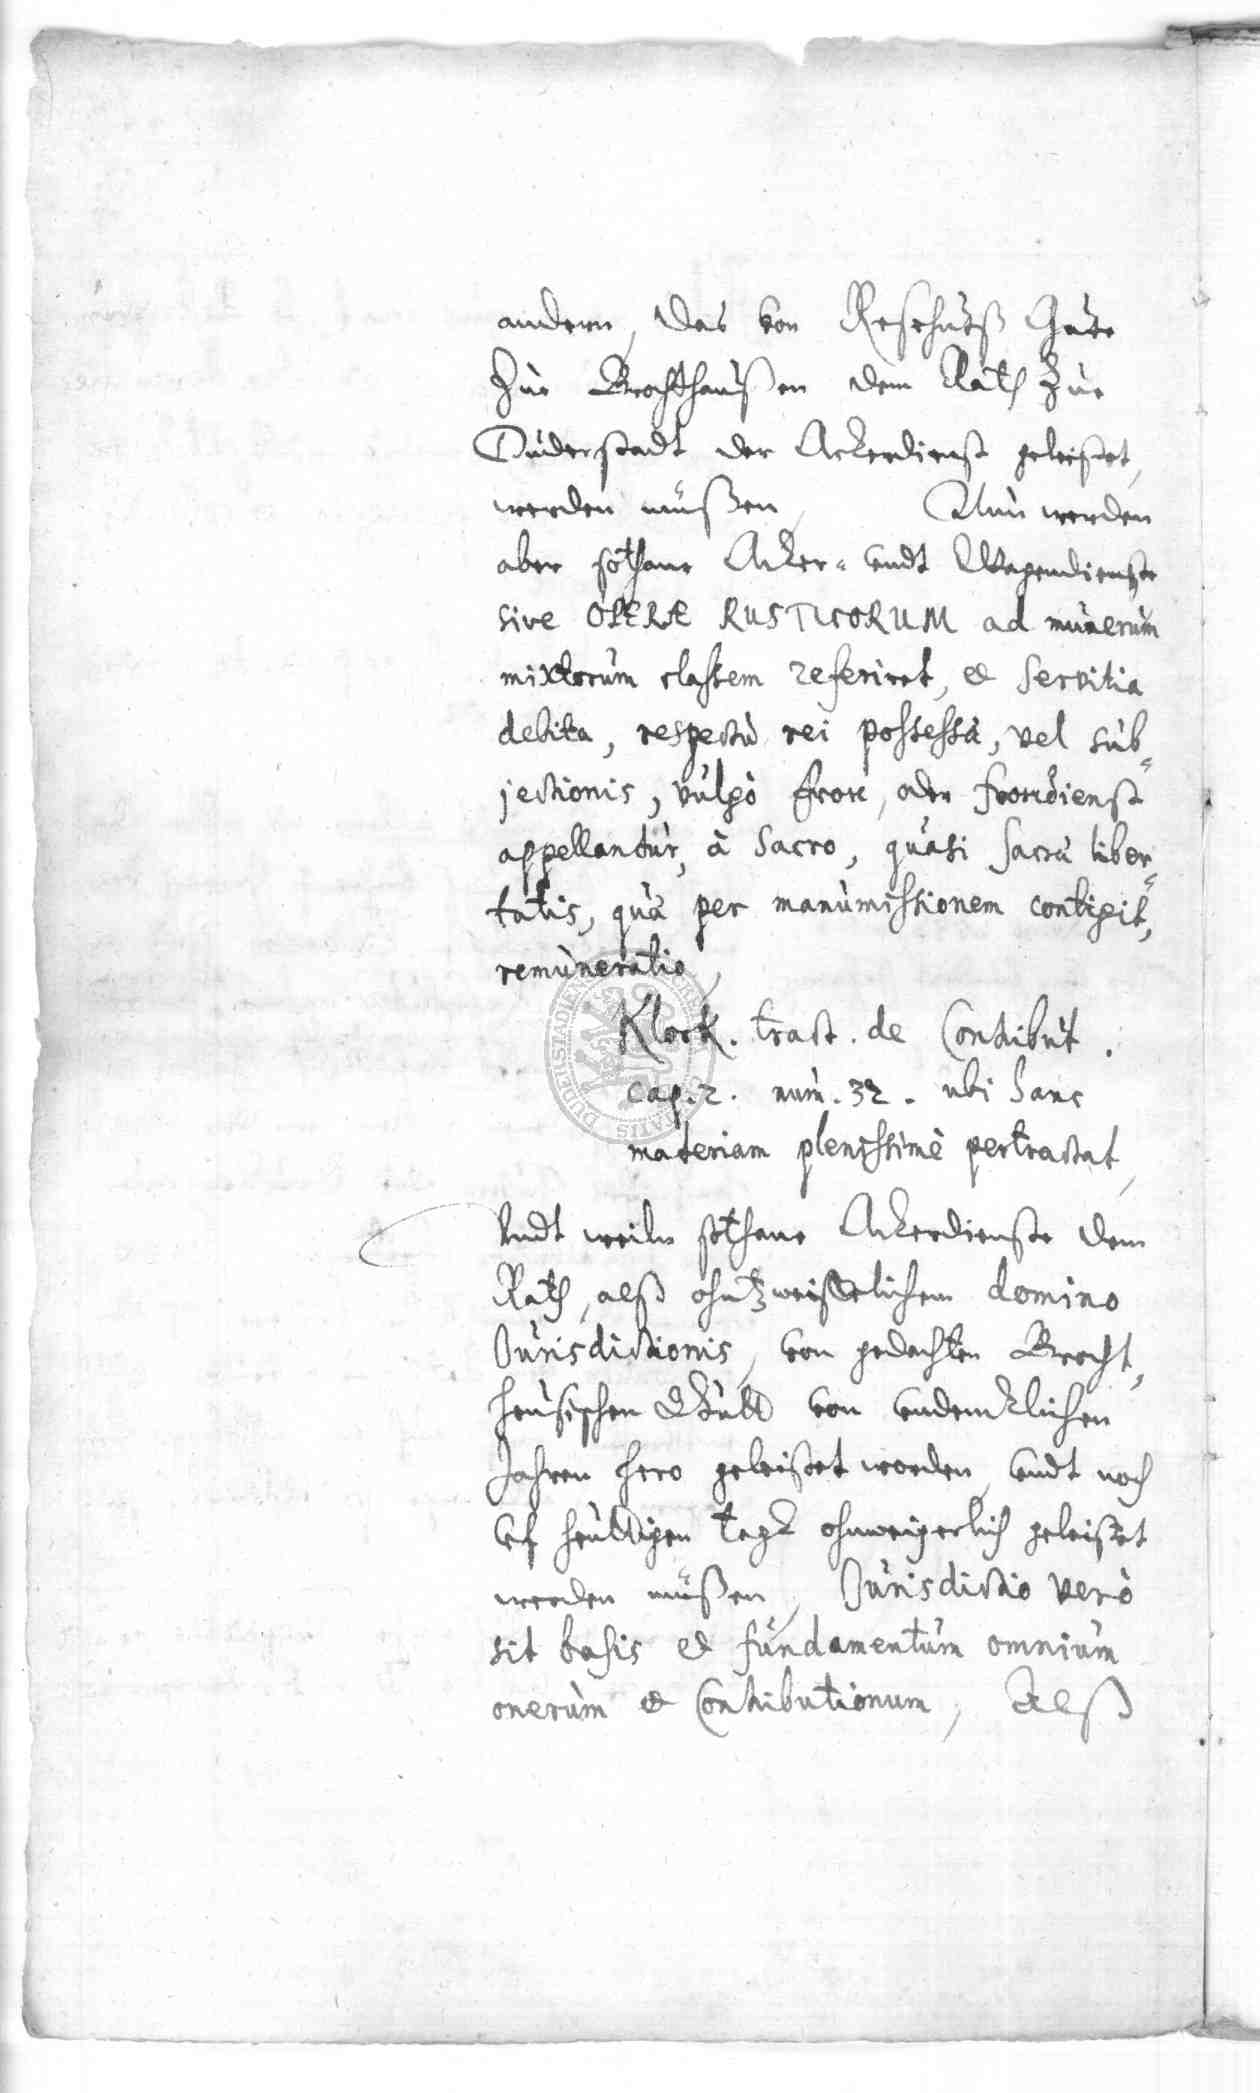 andern, das von Reschuts Gute
Zur Brochthaußen dem Rath Zur
Duderstadt der Ackerdienst geleistet,
werden müßen, Nun werden
aber sothane Acker- undt Wagendienste
sive OPERÆ RUSTICORUM ad munerum
mixtorum classem referiret, et servitia
debita, respectu rei possessæ, vel sub-
jectionis, vulgò frone, oder fronedienst
appellantur, à sacro, quasi sacra liber-
tatis, quæ per manumissionem contigit,
remuneratio,
Klock. tract. de Contribut.
cap. 2. num. 32. ubi hanc
materiam plenissimè pertractat,
Undt weiln sothane Ackerdienste dem
Rath, alß ohntzweiffelichem domino
Jurisdictionis, von gedachten Brocht,
heusischen von undencklichen
Jahren hero geleistet worden, undt noch
uf heuttigen tagk ohnweigerlich geleistet
werden müßen, Jurisdictio verò
sit basis et fundamentum omnium
onerum et Contributionum, Alß